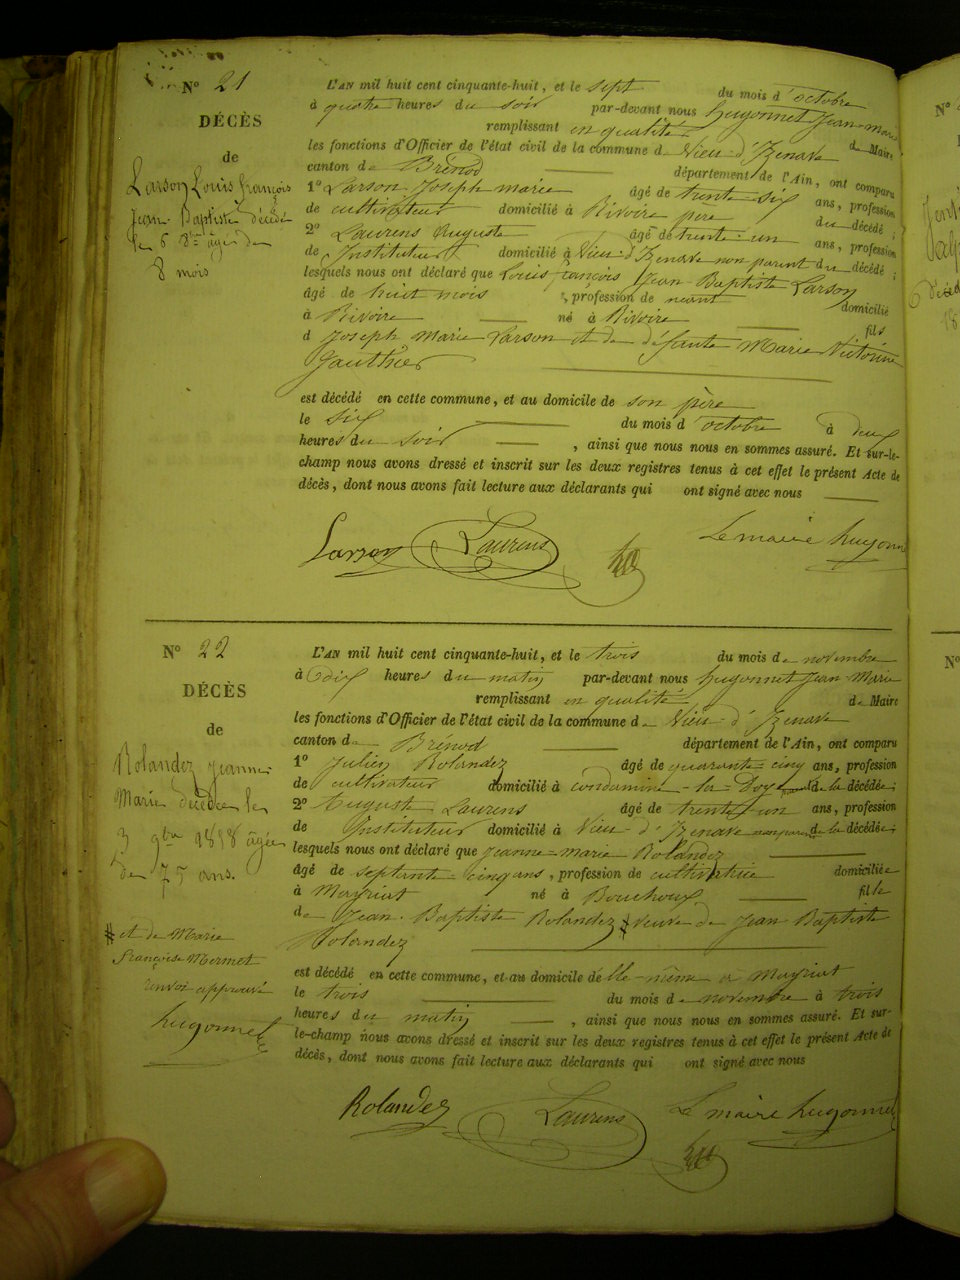 N° 21
DÉCÈS
de
Larson Louis françois
Jean-Baptiste décédé
le 6 8bre âgé de
8 mois
L'AN mil huit cent cinquante-huit, et le sept du mois d'octobre
à quatre heures du soir par-devant nous hugonnet Jean-Marie
remplissant en qualité de Maire
les fonctions d'Officier de l'état civil de la commune de Vieu-d'Izenave
canton de Brénod département de l'Ain, ont comparu
1° Larson Joseph marie âgé de trente six ans, profession
de cultivateur domicilié à Rivoire père du décédé;
2° Laurens Auguste âgé de trente-un ans, profession
de Instituteur domicilié à Vieu-d'Izenave non parent du décédé;
lesquels nous ont déclaré que Louis françois Jean-Baptiste Larson
âgé de huit mois, profession de néant domicilié
à Rivoire né à Rivoire fils
d Joseph Marie Larson et de défunte Marie Victorine
Gauthier
est décédé en cette commune, et au domicile de son père
le six du mois d'octobre à deux
heures du soir, ainsi que nous nous en sommes assuré. Et sur-le-
champ nous avons dressé et inscrit sur les deux registres tenus à cet effet le présent Acte de
décès, dont nous avons fait lecture aux déclarants qui ont signé avec nous
Larson Laurens Le maire hugonn
N° 22
DÉCÈS
de
Rolandez jeanne
Marie décédée le
3 9bre 1858 âgée
de 75 ans.
L'AN mil huit cent cinquante-huit, et le trois du mois de novembre
à dix heures du matin par-devant nous hugonnet Jean-Marie
remplissant en qualité de Maire
les fonctions d'Officier de l'état civil de la commune de Vieu-d'Izenave
canton de Brénod département de l'Ain, ont comparu
1° Julien Rolandez âgé de quarante-cinq ans, profession
de cultivateur domicilié à condamine-la-Doye de la décédée;
2° Auguste Laurens âgé de trente-un ans, profession
de Instituteur domicilié à Vieu-d'Izenave non parent de la décédée;
lesquels nous ont déclaré que jeanne-marie Rolandez
âgé de septante-cinq ans, profession de cultivatrice domiciliée
à Mayriat né à Bouchoux fille
de Jean-Baptiste Rolandez # veuve de Jean-Baptiste
Rolandez
est décédé en cette commune, et au domicile d'elle-même à Mayriat
le trois du mois de novembre à trois
heures du matin, ainsi que nous nous en sommes assuré. Et sur-
le-champ nous avons dressé et inscrit sur les deux registres tenus à cet effet le présent Acte de
décès, dont nous avons fait lecture aux déclarants qui ont signé avec nous
# et de Marie
françoise Mermet
renvoi approuvé
hugonnet
Rolandez Laurens Le maire hugonnet